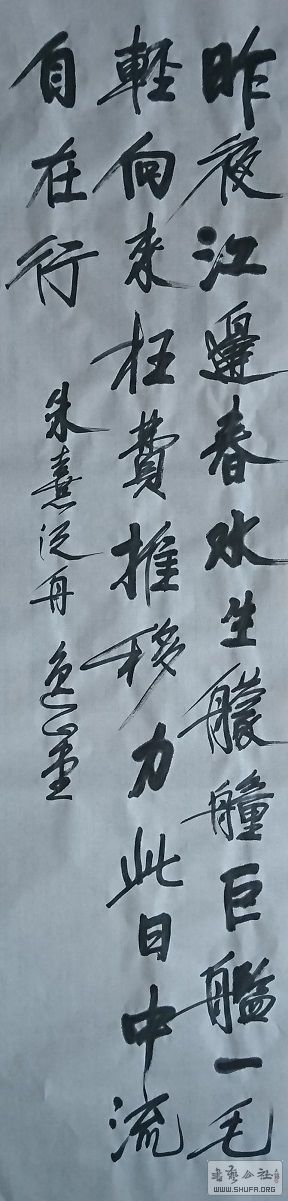 昨夜江邊春水生艨艟巨艦一毛
輕向来枉費推移力此日中流
自在行
朱熹泛舟
WWW.SHUFA.ORG